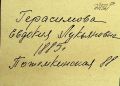 Герасимова
Евдокия Лукьяновна
1885г
Потемкинская 88